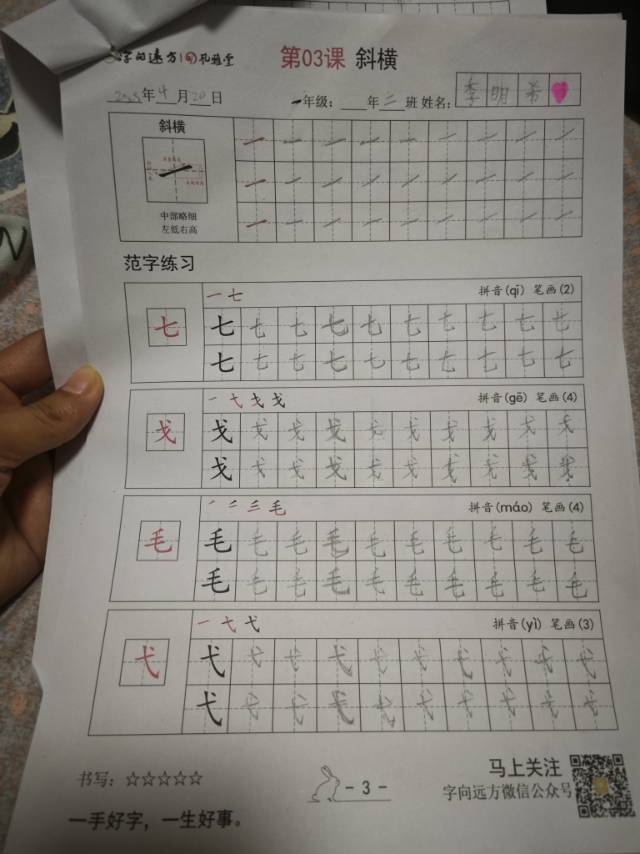 字向远方 孔雅堂
第03课 斜横
年4月20日 一年级: 年二班 姓名: 李明希
斜横
中部略细
左低右高
范字练习
一 七 拼音(qī) 笔画(2)
七 七 七 七 七 七 七 七 七 七 七
七 七 七 七 七 七 七 七 七 七 七
一 弋 戈 戈 拼音(gē) 笔画(4)
戈 戈 戈 戈 戈 戈 戈 戈 戈 戈 戈
戈 戈 戈 戈 戈 戈 戈 戈 戈 戈
毛 拼音(máo) 笔画(4)
毛 毛 毛 毛 毛 毛 毛 毛 毛 毛 毛
毛 毛 毛 毛 毛 毛 毛 毛 毛 毛
一 弋 弋 拼音(yì) 笔画(3)
弋 弋 弋 弋 弋 弋 弋 弋 弋 弋 弋
弋 弋 弋 弋 弋 弋 弋 弋 弋 弋
书写: ☆☆☆☆☆
马上关注
- 3 -
字向远方微信公众号
一手好字，一生好事。